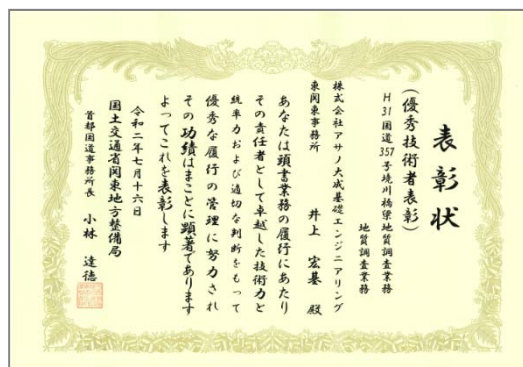 表彰状
(優秀技術者表彰)
H31国道357号境川橋梁地質調査業務
地質調査業務
株式会社アサノ大成基礎エンジニアリング
東関東事務所　井上　宏基　殿
あなたは頭書業務の履行にあたり
その責任者として卓越した技術力と
統率力および適切な判断をもって
優秀な履行の管理に努力され
その功績はまことに顕著であります
よってこれを表彰します
令和二年七月十六日
国土交通省関東地方整備局
首都国道事務所長　小林　達徳